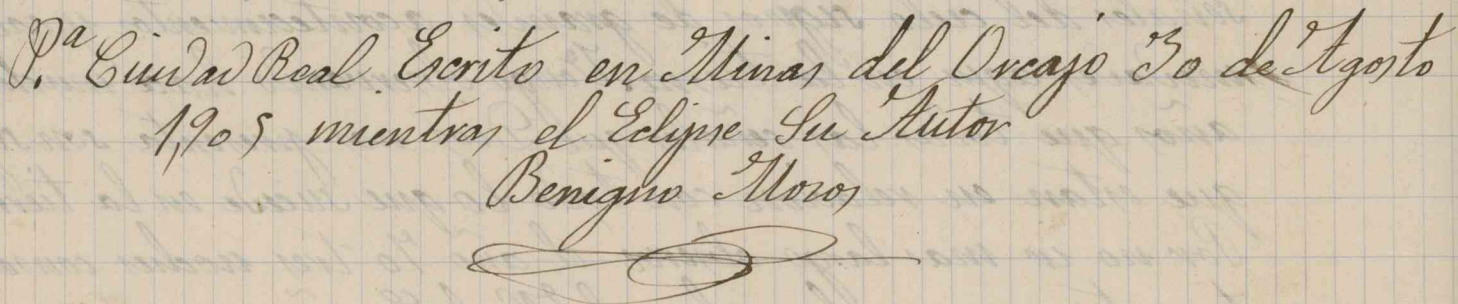 P.ª Ciudad Real. Escrito en Minas del Orcajo 30 de Agosto
1,905 mientras el Eclipse Su Autor
Benigno Moros